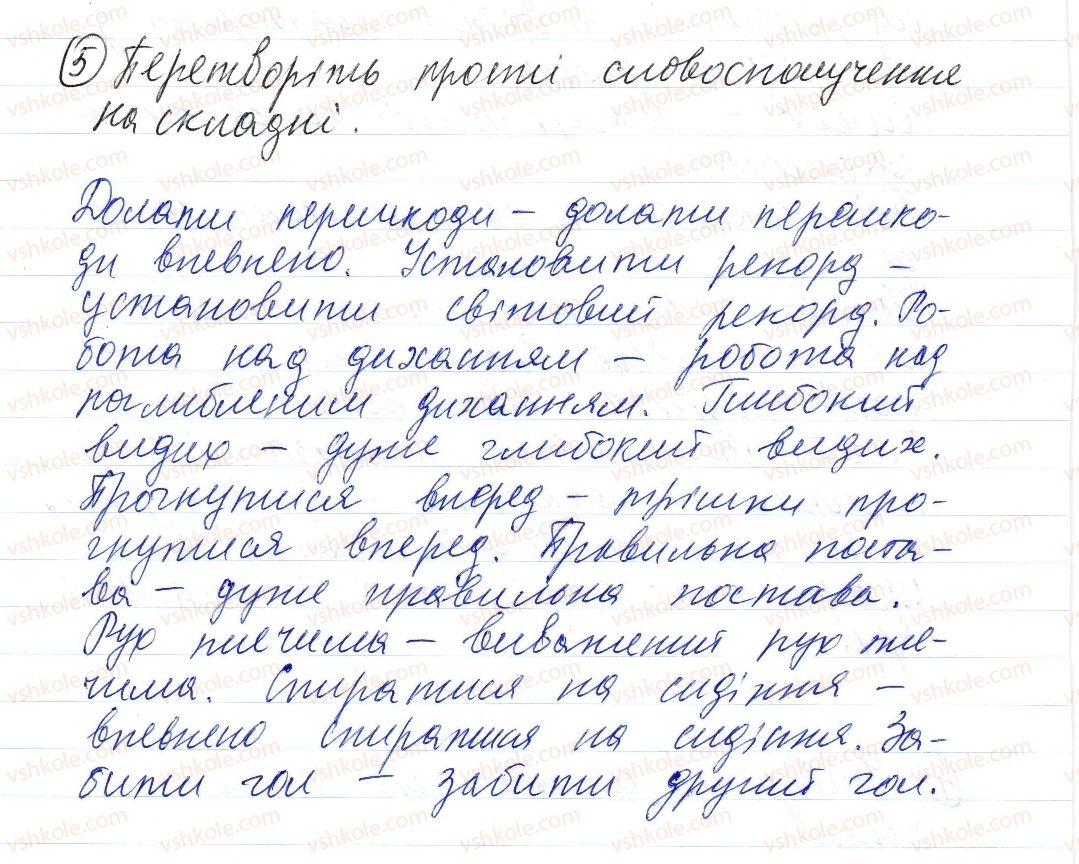 ⑤ Перетворіть прості словосполучення
на складні.
Долати перешкоди – долати перешко-
ди впевнено. Установити рекорд –
установити світовий рекорд. Ро-
бота над диханням – робота над
поглибленим диханням. Глибокий
видих – дуже глибокий видих.
Прогнутися вперед – трішки про-
гнутися вперед. Правильна поста-
ва – дуже правильна постава.
Рух плечима – виважений рух пле-
чима. Спиратися на сидіння –
впевнено спиратися на сидіння. За-
бити гол – забити другий гол.